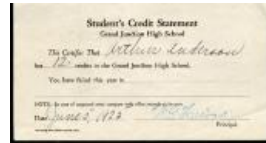 Student's Credit Statement
Grand Junction High School
This Certifies That Arthur Anderson
has 12 credits in the Grand Junction High School.
You have failed this year in
NOTE: In case of
Date June 5, 1922
Principal